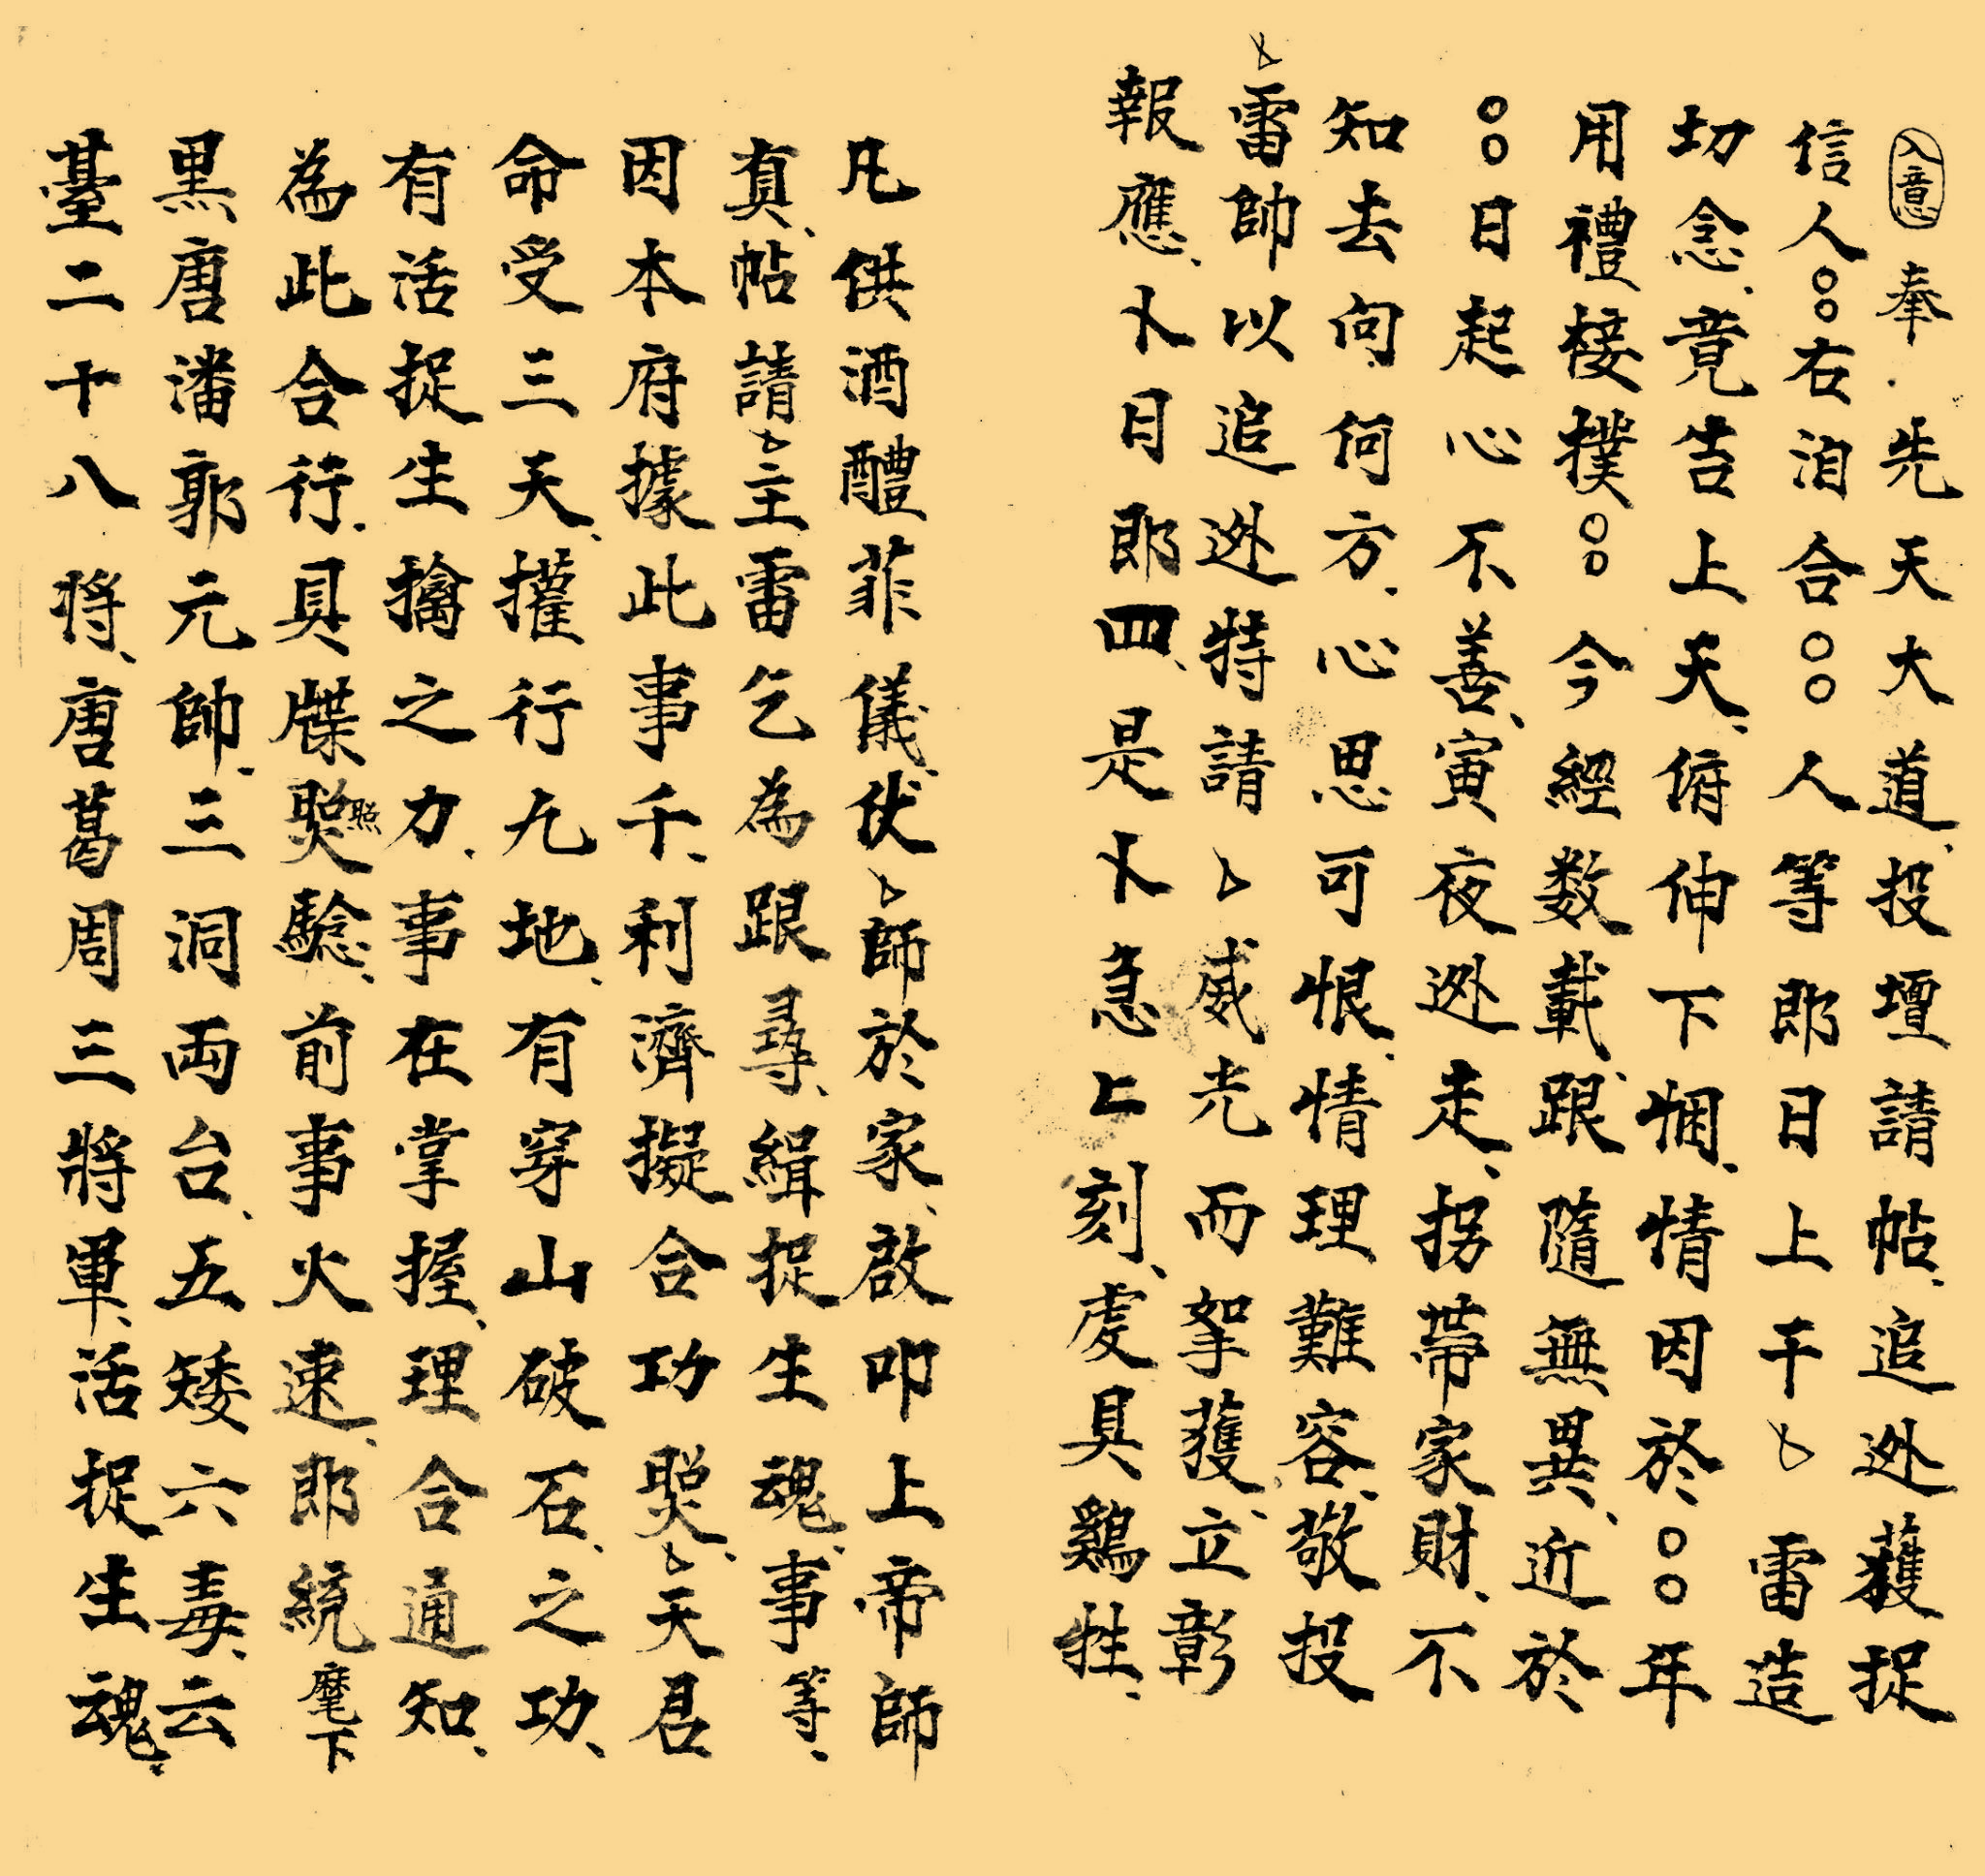 入意 奉 先天大道、投壇請帖、追迯獲捉
信人〇〇右洎合〇〇人等即日上干 雷造
切念、竟告上天、俯伸下悃、情因於〇〇年
用禮接撲〇〇今經数載、跟隨無異、近於
〇〇日起心不善、寅夜迯走、拐帶家財、不
知去向、何方、心思可恨、情理難容、敬投
雷帥以追迯特請 威光而拏獲、立彰
報應、卜日即四、是卜急上刻、虔具鷄牲、
凡供酒醴菲儀、伏師於家、啟叩上帝師
真、帖請主雷乞為跟尋、緝捉生魂、事等、
因本府據此事千、利濟擬合功㷖、天君
命受三天、權行九地、有穿山破石、之功、
有活捉生擒之力、事在掌握、理合通知、
為此合行、具牒㷖照驗、前事火速、即統麾下
黑唐潘郭元帥、三洞両台、五矮六毒、云
臺二十八將、唐葛周三將軍、活捉生魂、